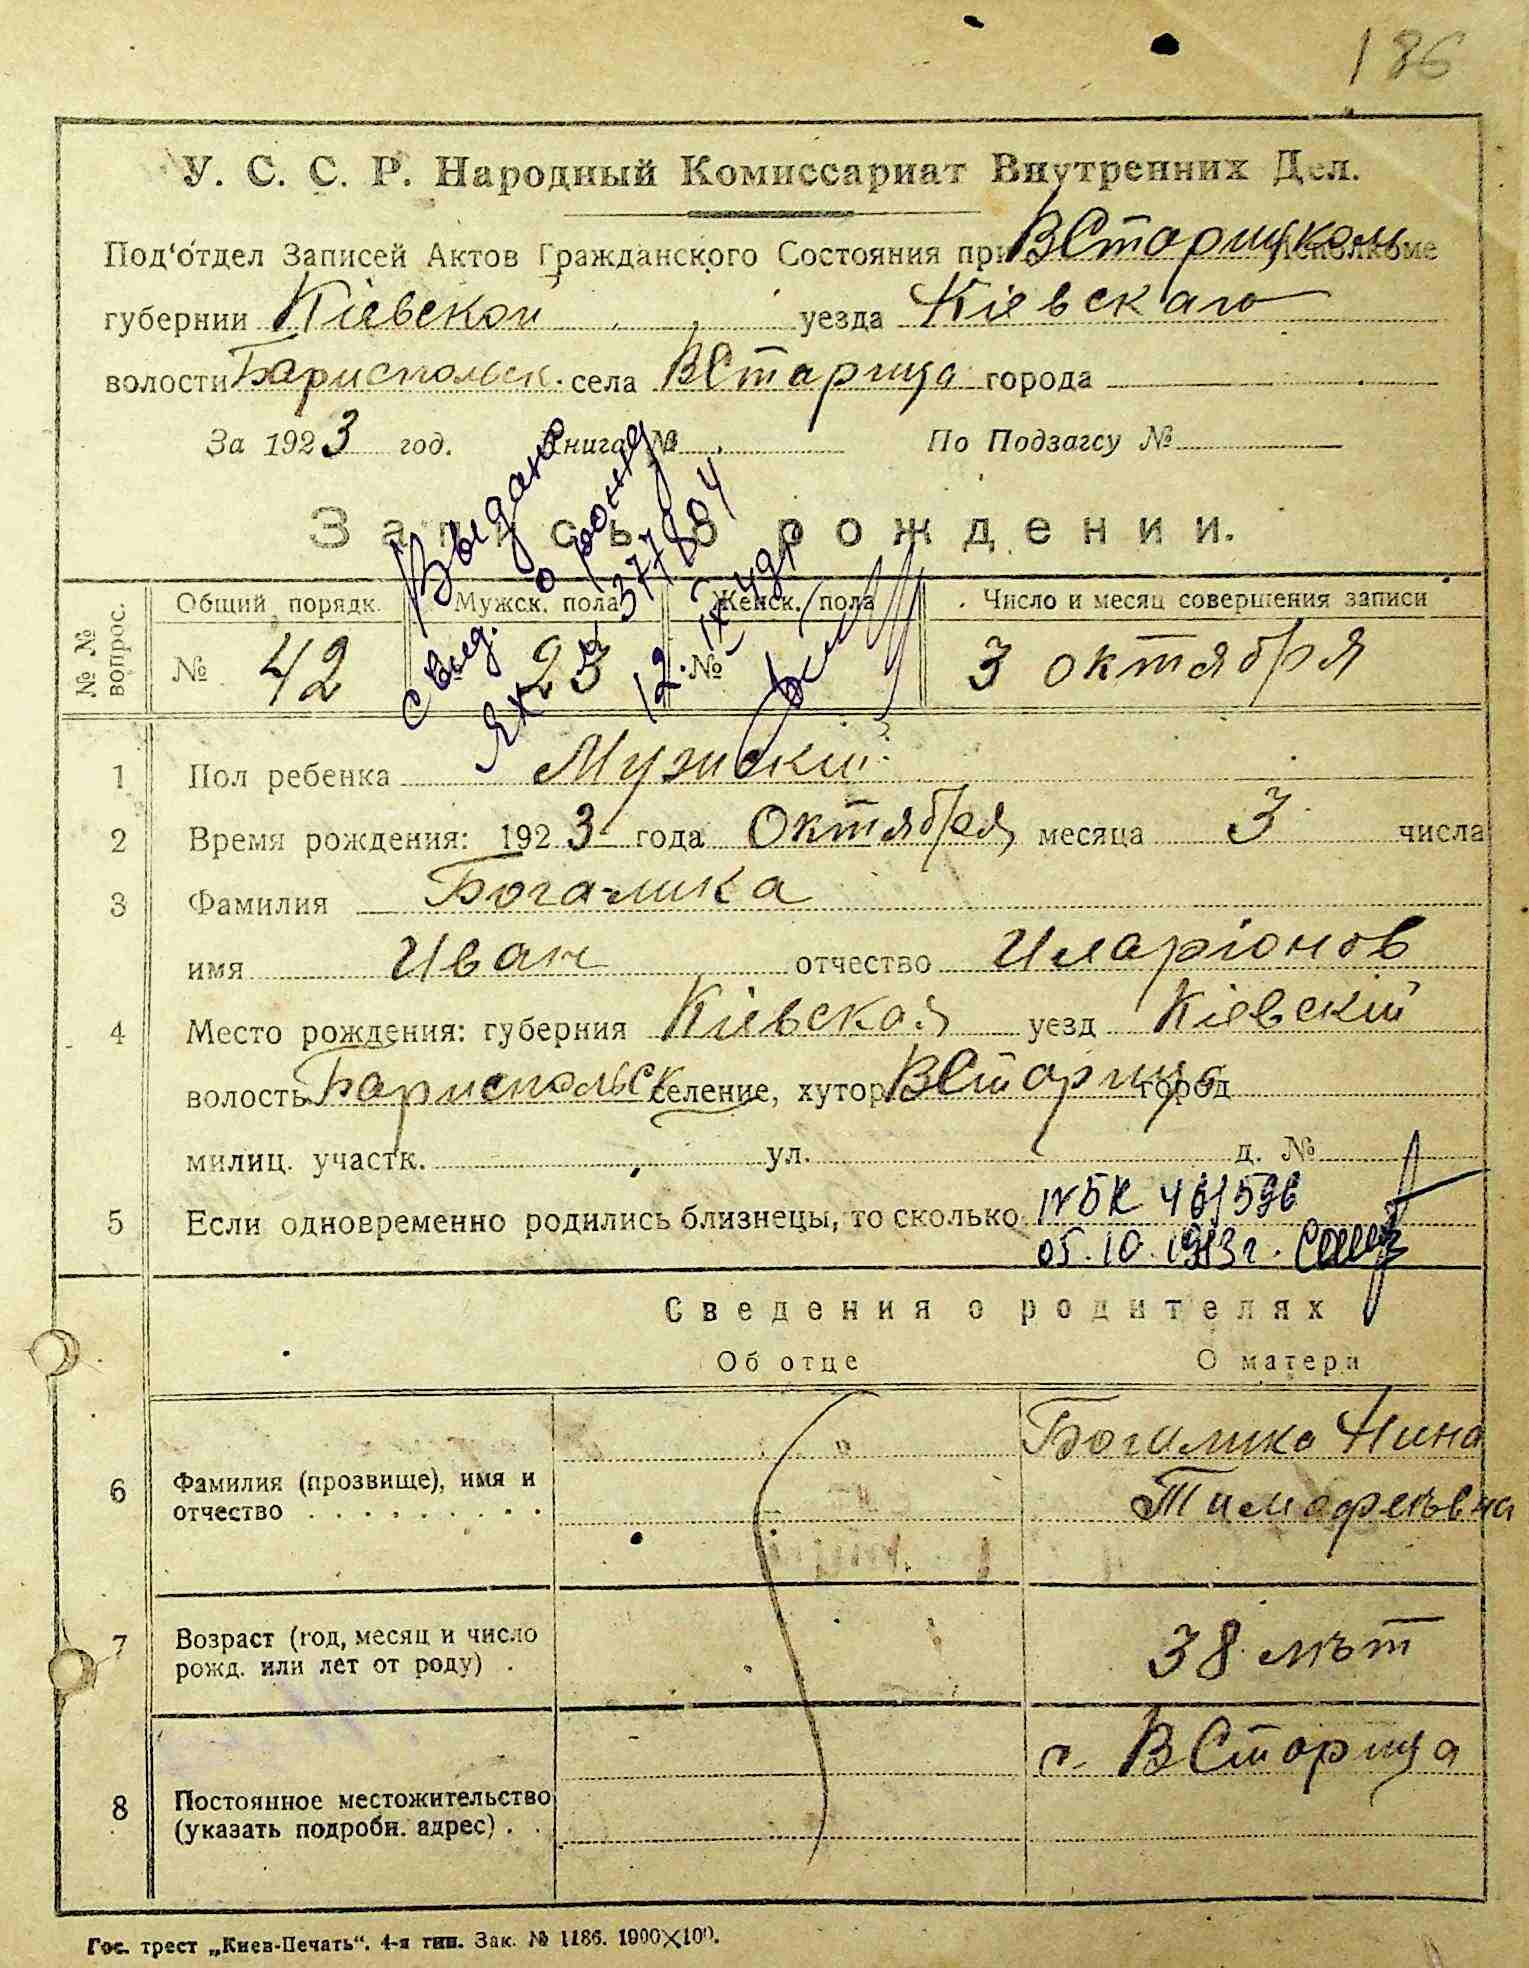 186
У. С. С. Р. Народный Комиссариат Внутренних Дел.
Под'отдел Записей Актов Гражданского Состояния при ВСтарицком Исполкоме
губернии Кіевской уезда Кіевскаго
волости Бариспольск. села ВСтарица города
За 1923 год. Книга № По Подзагсу №
Запись о рождении.
Выдано
свид. о рожд
12. IX 49г
№ № вопрос.
Общий порядк. Мужск. пола Женск. пола Число и месяц совершения записи
№ 42 23 № 3 октября
1 Пол ребенка Мужский
2 Время рождения: 1923 года Октября месяца 3 числа
3 Фамилия Богамика
имя Иван отчество Иларіонов
4 Место рождения: губерния Кіевская уезд Кіевскій
волость Бариспольск селение, хутор ВСтарица город
милиц. участк. ул. д. №
5 Если одновременно родились близнецы, то сколько
Сведения о родителях
Об отце О матери
6 Фамилия (прозвище), имя и отчество
Богамика Нина
Тимофеъвна
7 Возраст (год, месяц и число рожд. или лет от роду) 38 лът
8 Постоянное местожительство (указать подробн. адрес)
с. ВСтарица
Гос. трест „Киев-Печать". 4-я тип. Зак. № 1186. 1000×100.